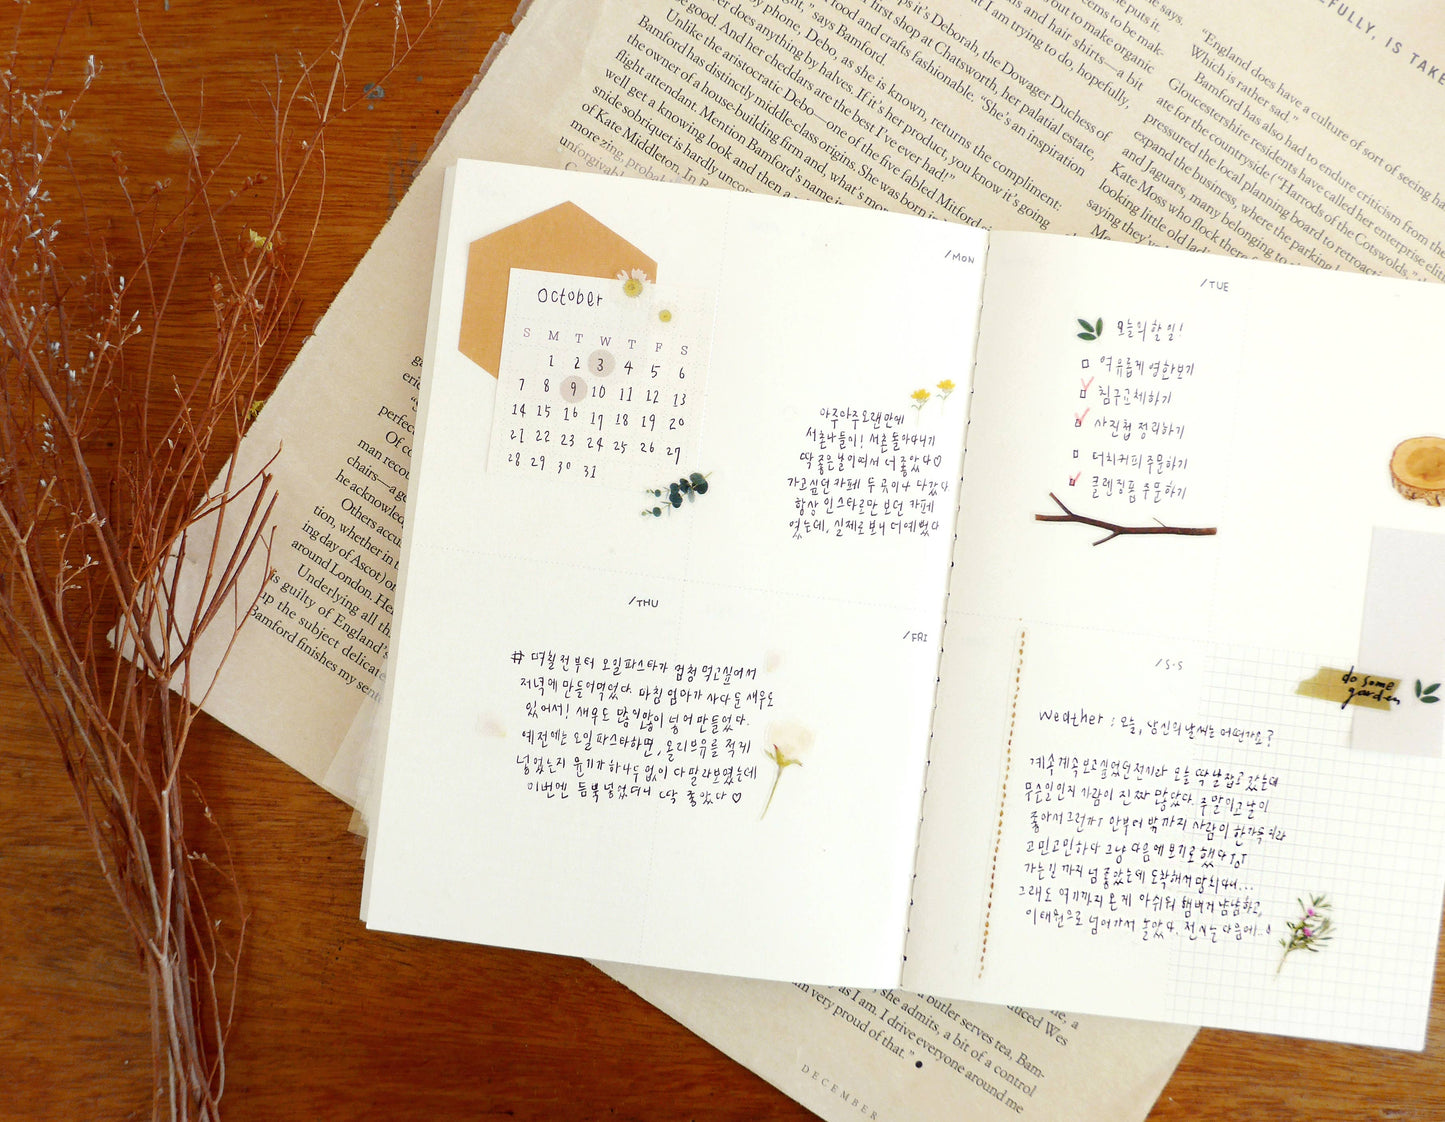 October
S M T W T F S
1 2 3 4 5 6
7 8 9 10 11 12 13
14 15 16 17 18 19 20
21 22 23 24 25 26 27
28 29 30 31
/MON
아주아주 오랜만에
서촌나들이! 서촌 돌아다니기
딱 좋은 날이여서 더 좋았다♡
가고싶던 카페 두 곳이나 다갔다
항상 인스타로만 보던 카페
였는데, 실제로 보니 더 예뻤다
/TUE
오늘의 할 일!
여유롭게 영화보기
침구교체하기
사진첩 정리하기
더치커피 주문하기
클렌징폼 주문하기
/THU
# 며칠전부터 오일파스타가 엄청 먹고싶어서
저녁에 만들어먹었다. 마침 엄마가 사다둔 새우도
있어서! 새우도 많이많이 넣어 만들었다.
예전에는 오일파스타하면, 올리브유를 적게
넣었는지 윤기가 하나두 없이 다 말라보였는데
이번엔 듬뿍 넣었더니 딱 좋았다 ♡
/FRI
/S·S
Weather : 오늘, 당신의 날씨는 어떤가요?
계속계속 보고싶었던 전시라 오늘 딱 날잡고 갔는데
무슨일인지 사람이 진짜 많았다. 주말이고 날이
좋아서 그런가? 안부터 밖까지 사람이 한가득이라
고민고민하다 그냥 다음에 보기로 했다 ToT
가는길까지 넘 좋았는데 도착해서 망쳐버려...
그래도 여기까지 온게 아쉬워 햄버거 냠냠하고,
이태원으로 넘어가서 놀았다. 전시는 다음에..!
do some
garden
FULLY, IS TAKE
"England does have a culture of sort of seeing
Which is rather sad."
Bamford has also had to endure criticism from the
Gloucestershire residents have called her enterprise
ate for the countryside ("Harrods of the Cotswolds,"
pressured the local planning board to retroactiv
expand the business, where the parking
and Jaguars, many belonging to
Kate Moss who flock there
looking little old
saying they
puts it.
seems to be mak-
out to make organic
and hair shirts—a bit
I am trying to do, hopefully,
it's Deborah, the Dowager Duchess of
first shop at Chatsworth, her palatial estate,
food and crafts fashionable. "She's an inspiration
says Bamford.
by phone, Debo, as she is known, returns the compliment:
does anything by halves. If it's her product, you know it's going
good. And her cheddars are the best I've ever had!"
Unlike the aristocratic Debo—one of the five fabled Mitford
Bamford has distinctly middle-class origins. She was born
the owner of a house-building firm and, what's more
flight attendant. Mention Bamford's name in
well get a knowing look and then a
snide sobriquet is hardly
of Kate Middleton. In
more zing,
unforgivable
Of
man
chairs—a
he acknowledge
Others
tion, whether in
ing day of Ascot) or
around London.
Underlying all
is guilty of England's
up the subject delicate
Bamford finishes my
a butler serves tea, Bam-
she admits, a bit of a control
as I am. I drive everyone around me
very proud of that."
DECEMBER